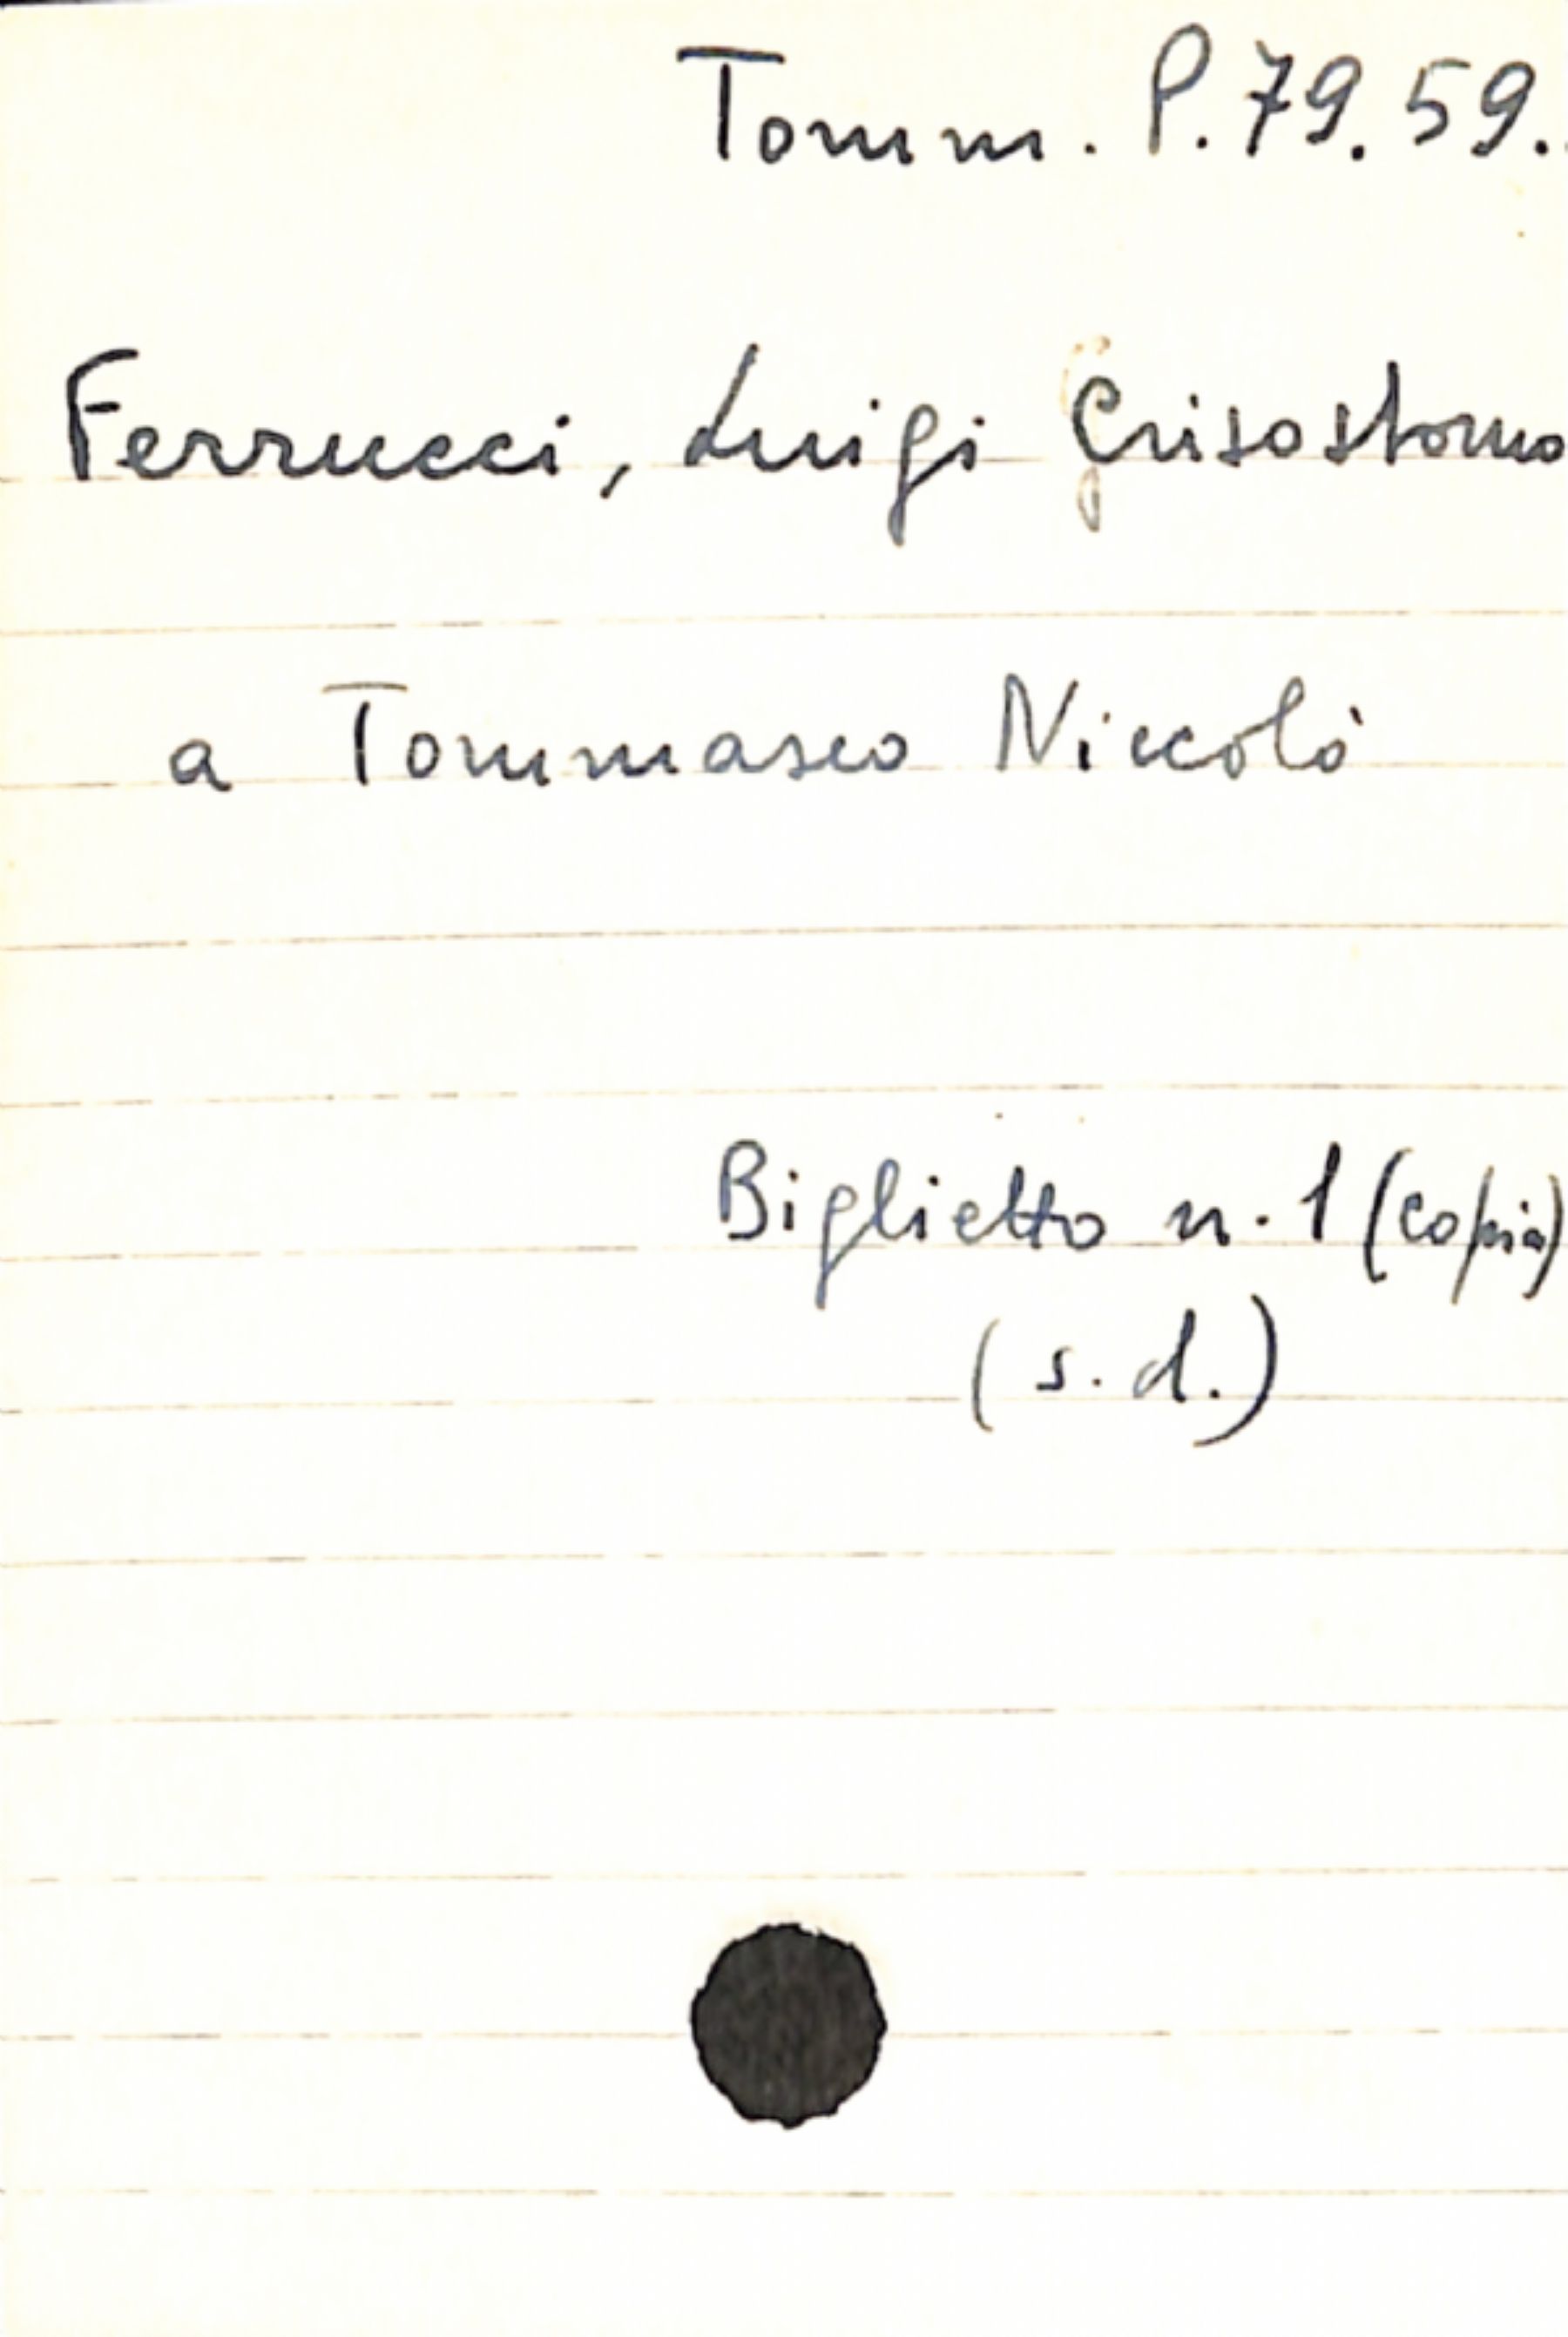 Tomm. P. 79. 59.
Ferrucci, Luigi Crisostomo
a Tommaseo Niccolò
Biglietto n. 1 (copia)
(s. d.)